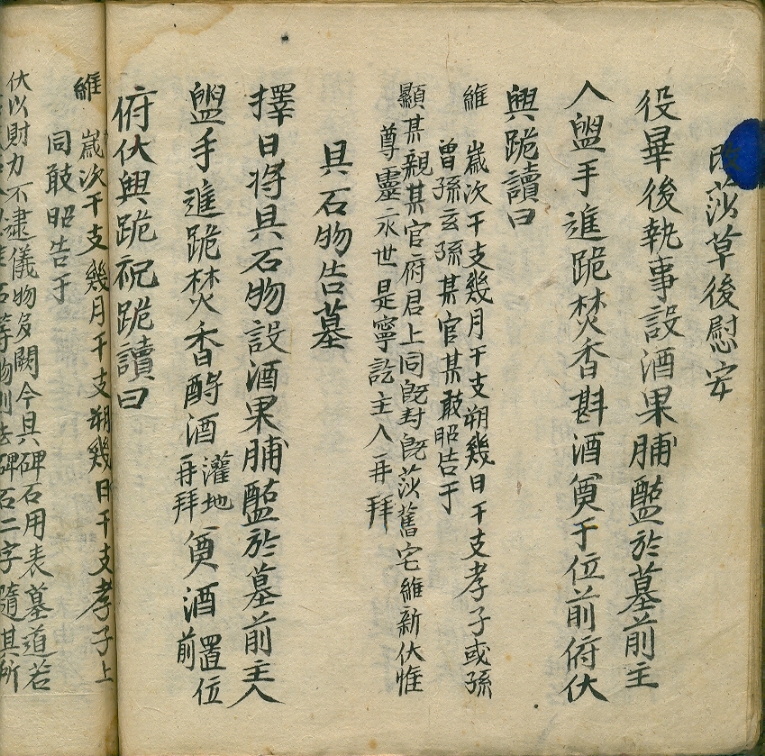 改莎草後慰安
役畢後執事設酒果脯醢於墓前主
人盥手進跪焚香斟酒奠于位前俯伏
興跪讀曰
維 歲次干支幾月干支朔幾日干支孝子或孫
曾孫玄孫某官某敢昭告于
顯某親某官府君上同旣封旣莎舊宅維新伏惟
尊靈永世是寧訖主人再拜
具石物告墓
擇日將具石物設酒果脯醢於墓前主人
盥手進跪焚香酹酒灌地再拜奠酒置位前
俯伏興跪祝跪讀曰
維 歲次干支幾月干支朔幾日干支孝子上
同敢昭告于
伏以財力不逮儀物多闕今具碑石用表墓道若
石等物則去碑石二字隨其所